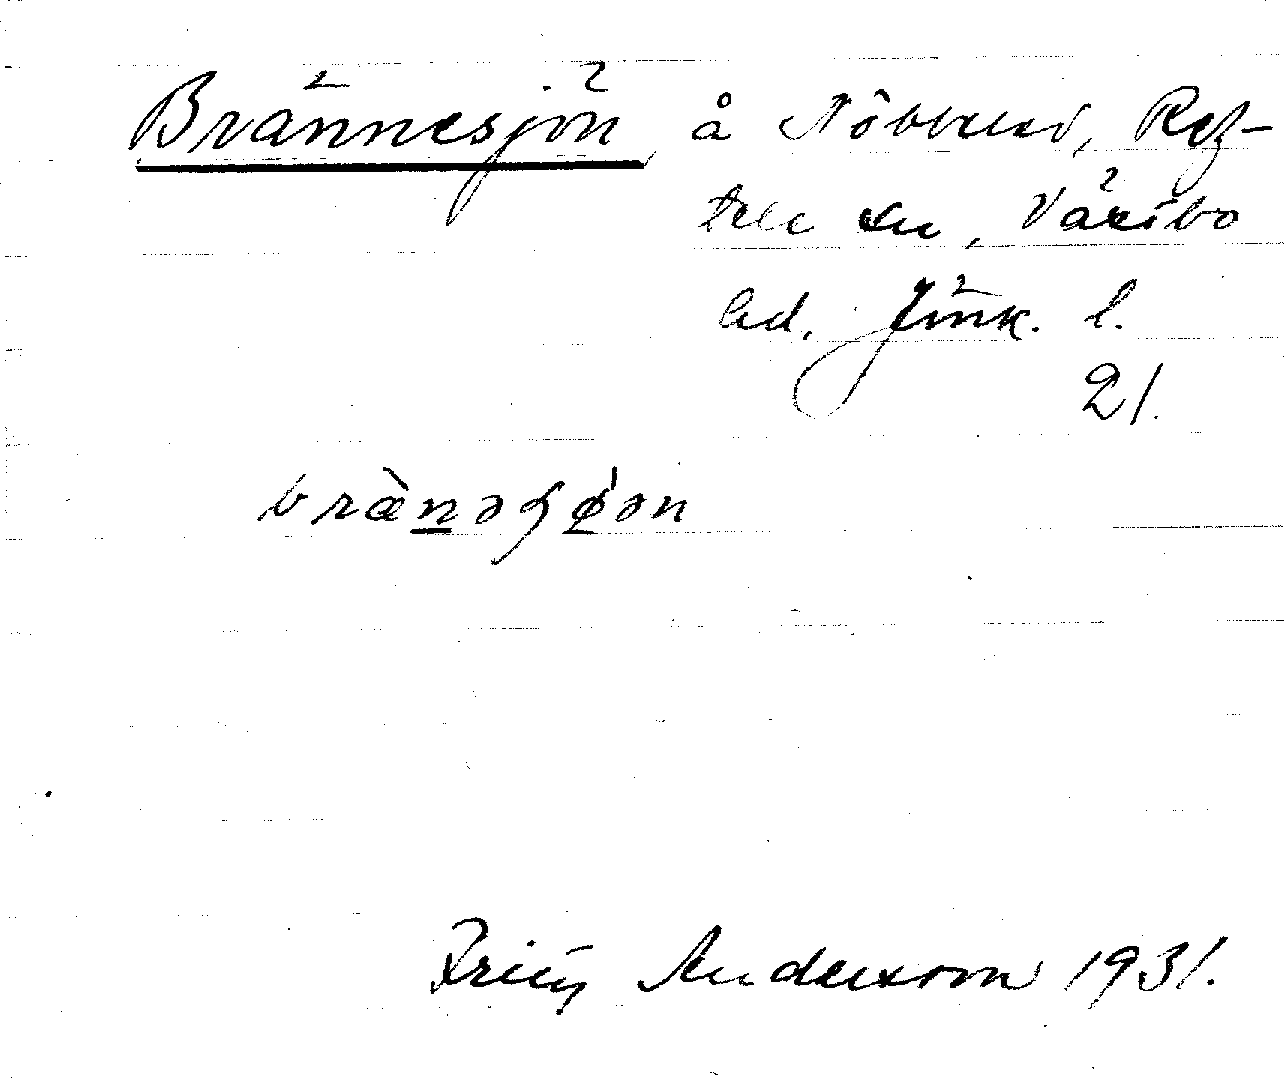 Brännesjön å Nöbbeled, Ref-
tele sn, Västbo
hd. Jönk. l.
21.
brænəʂøən
Fritz Andersson 1931.